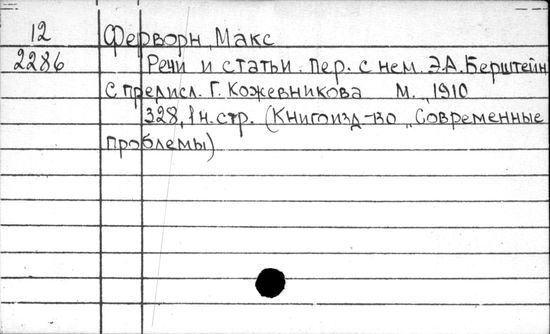 12 Ферворн, Макс
2286 Речи и статьи. Пер. с нем. Э.А. Берштейн
с предисл. Г. Кожевникова М., 1910
328, 1н. стр. (Книгоизд-во „Современные
проблемы)